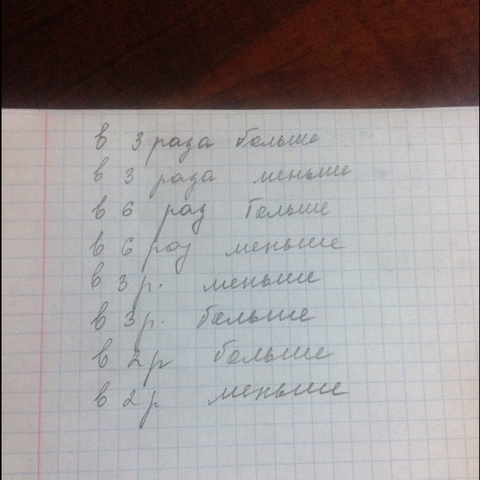 в 3 раза больше
в 3 раза меньше
в 6 раз больше
в 6 раз меньше
в 3 р. меньше
в 3 р. больше
в 2 р больше
в 2 р меньше